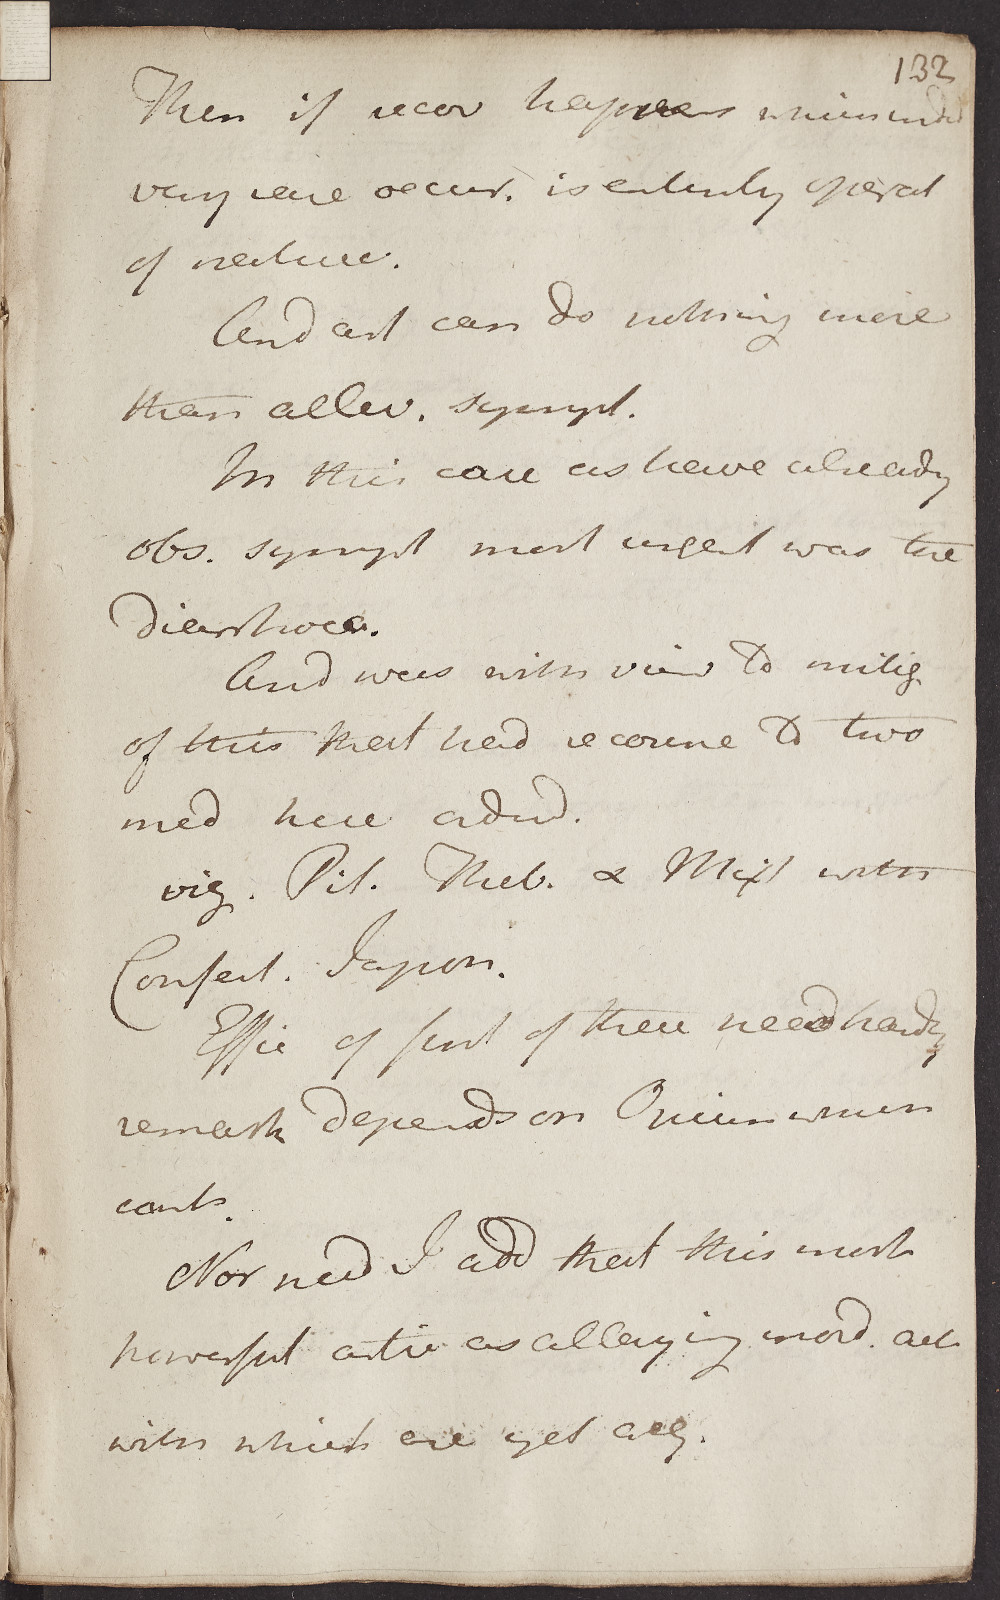 132
Then if recov happens which indeed
very rare occur. is entirely operat
of nature.
And art can do nothing more
than allev. sympt.
In this case as have already
obs. sympt most urgent was the
Diarrhoea.
And was with view to mitig.
of this that had recourse to two
med here adved.
viz. Pil. Theb. & Mixt with
Confect. Japon.
Effic of first of these need hardly
remark depends on Opium which
conts.
Nor need I add that this most
powerful artic as allaying inord. act
with which are yet acq.